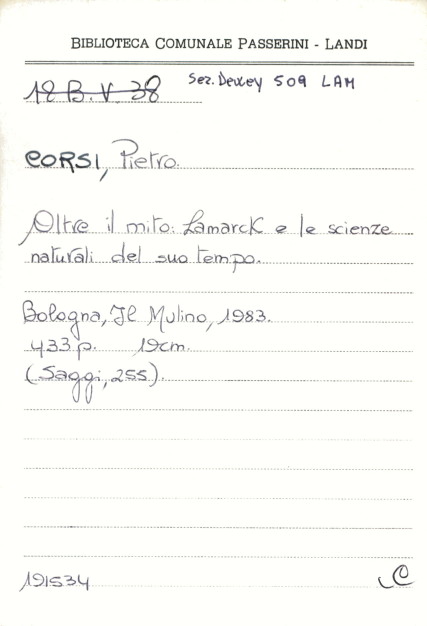 BIBLIOTECA COMUNALE PASSERINI - LANDI
18 B. V. 38 Sez. Dewey 509 LAM
CORSI, Pietro.
Oltre il mito: Lamarck e le scienze
naturali del suo tempo.
Bologna, Il Mulino, 1983.
433 p. 19cm.
(Saggi, 255).
191534 C